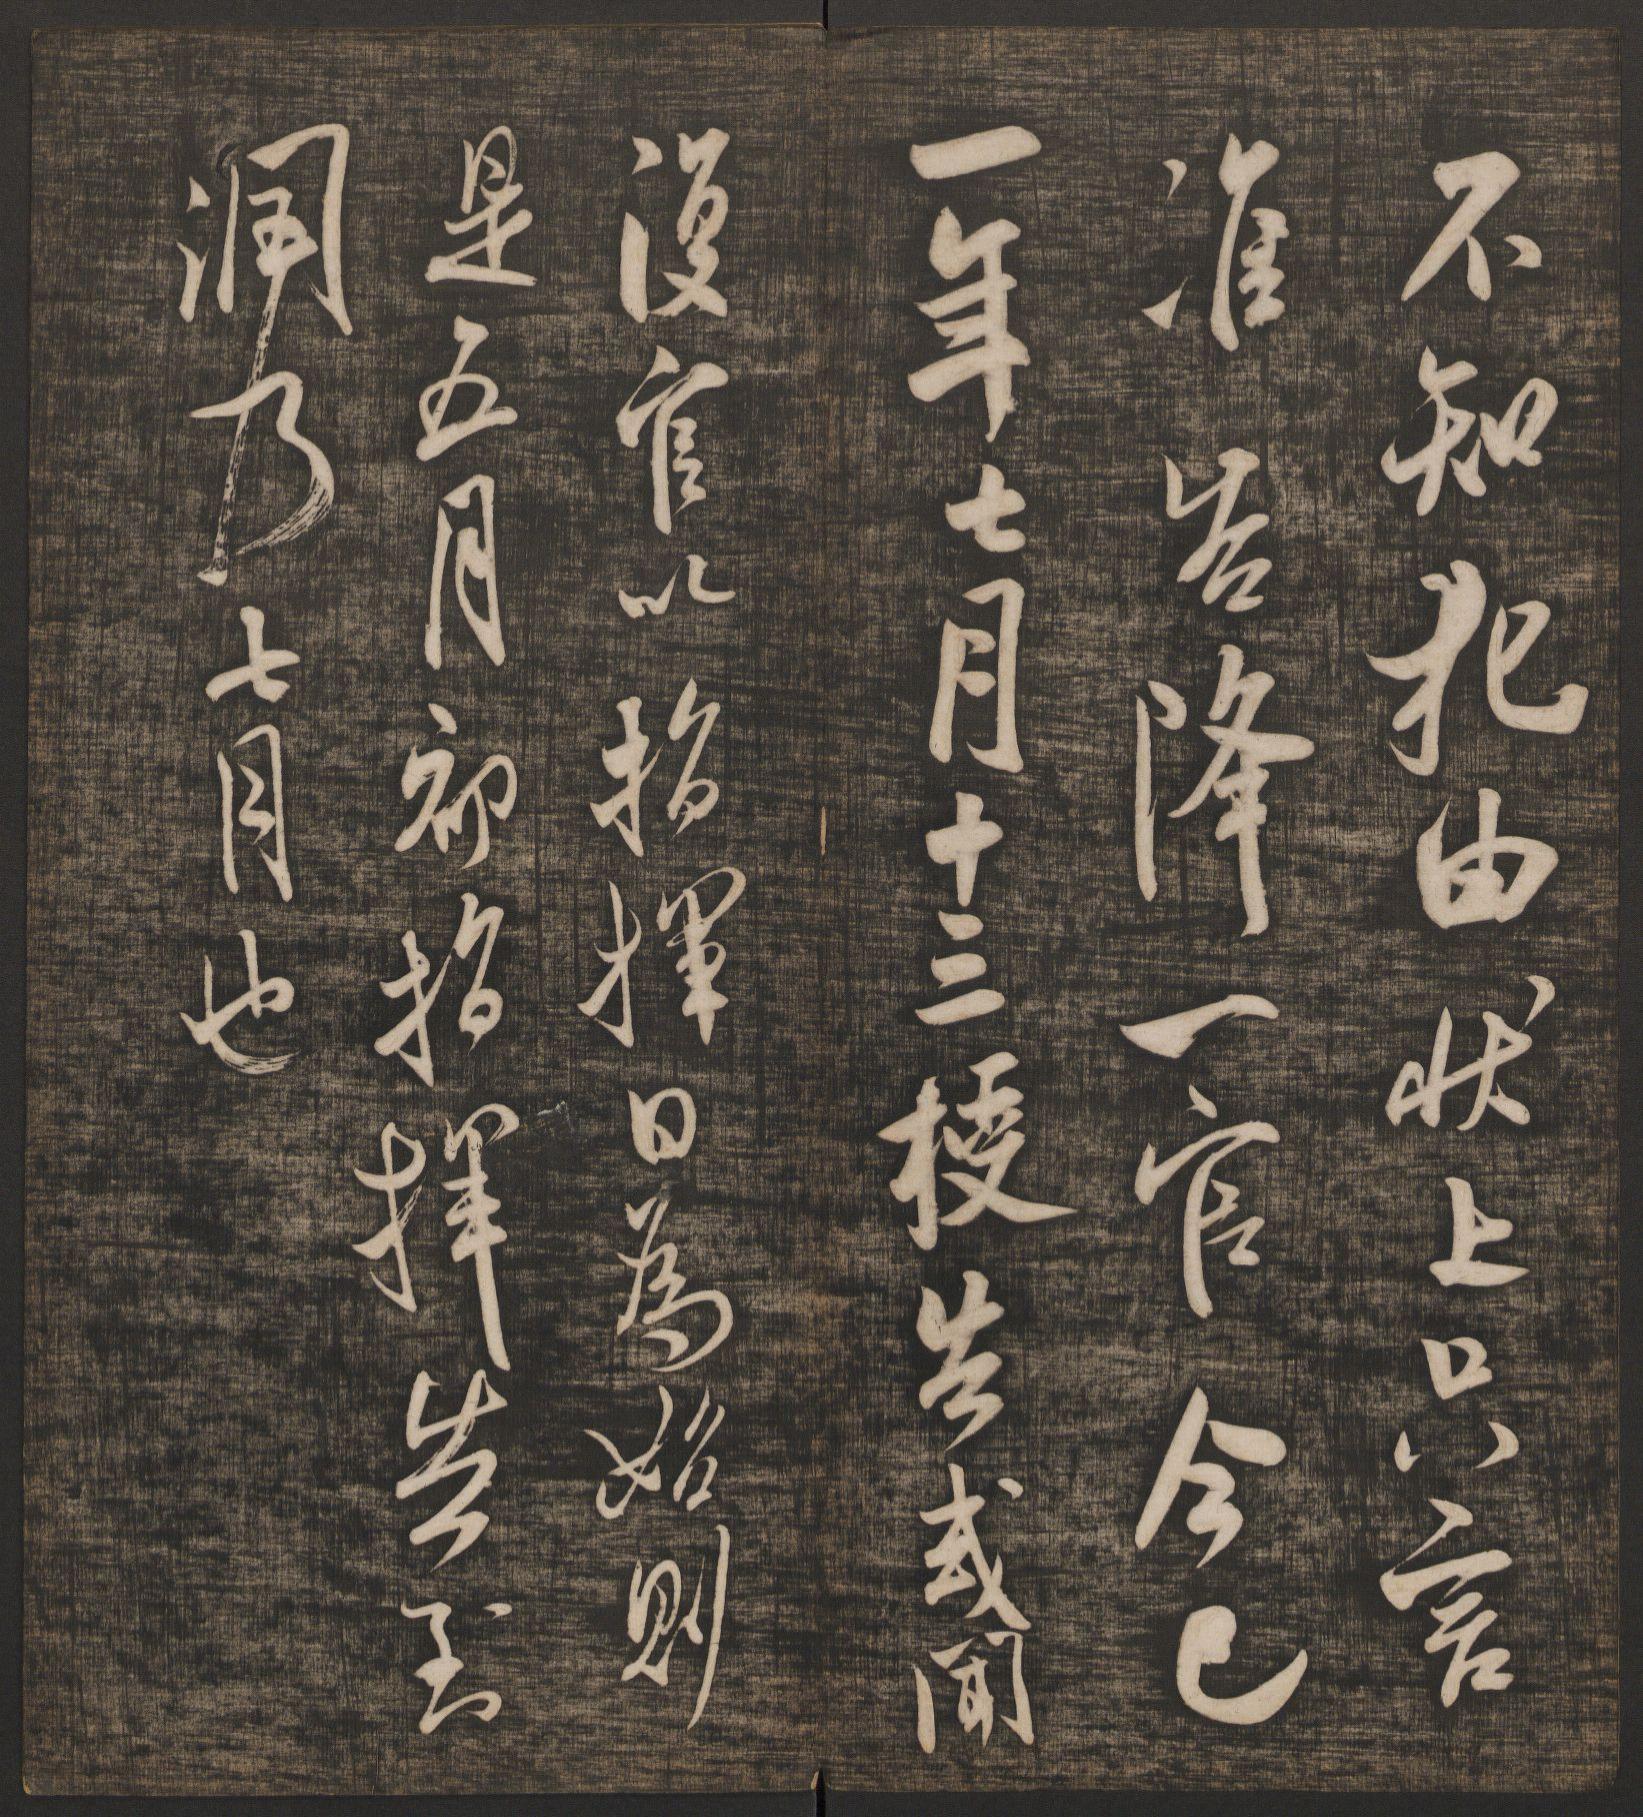 不知犯由狀上只言
准告降一官今已
一年七月十三授告或聞
復官以指揮日為始則
是五月初指揮告到
潤乃七月也